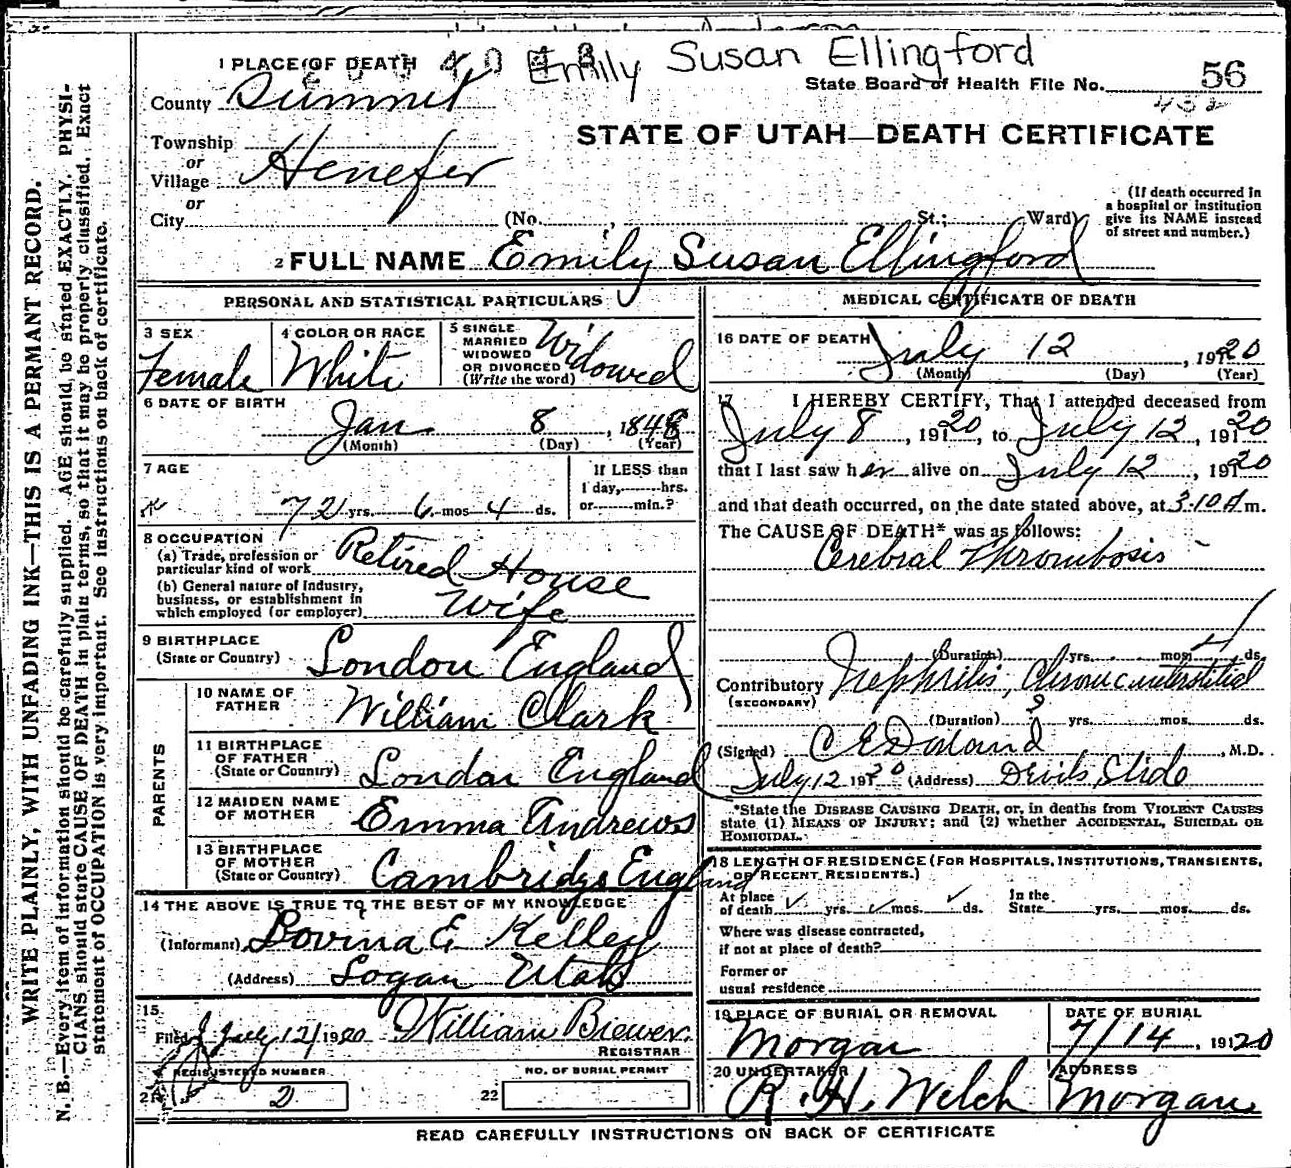 Emily Susan Ellingford
1 PLACE OF DEATH
State Board of Health File No. 56
County Summit
STATE OF UTAH—DEATH CERTIFICATE
Township
or
Village Henefer
or
City (No. St.; Ward)
(If death occurred in
a hospital or institution
give its NAME instead
of street and number.)
2 FULL NAME Emily Susan Ellingford
WRITE PLAINLY, WITH UNFADING INK—THIS IS A PERMANT RECORD.
N. B.—Every item of information should be carefully supplied. AGE should be stated EXACTLY. PHYSI-
CIANS should state CAUSE OF DEATH in plain terms, so that it may be properly classified. Exact
statement of OCCUPATION is very important. See instructions on back of certificate.
PERSONAL AND STATISTICAL PARTICULARS
3 SEX
Female
4 COLOR OR RACE
White
5 SINGLE
MARRIED
WIDOWED
OR DIVORCED
(Write the word)
Widowed
6 DATE OF BIRTH
Jan 8, 1848
(Month) (Day) (Year)
7 AGE
72 yrs. 6 mos 4 ds.
If LESS than
1 day, hrs.
or min.?
8 OCCUPATION
(a) Trade, profession or
particular kind of work
Retired House
(b) General nature of Industry,
business, or establishment in
which employed (or employer)
Wife
9 BIRTHPLACE
(State or Country)
London England
PARENTS
10 NAME OF
FATHER
William Clark
11 BIRTHPLACE
OF FATHER
(State or Country)
London England
12 MAIDEN NAME
OF MOTHER
Emma Andrews
13 BIRTHPLACE
OF MOTHER
(State or Country)
Cambridge England
14 THE ABOVE IS TRUE TO THE BEST OF MY KNOWLEDGE
(Informant) Lovina E. Kelley
(Address) Logan Utah
15
Filed July 12/1920 William Brewer
REGISTRAR
REGISTERED NUMBER
21 2
NO. OF BURIAL PERMIT
22
MEDICAL CERTIFICATE OF DEATH
16 DATE OF DEATH
July 12, 1920
(Month) (Day) (Year)
17 I HEREBY CERTIFY, That I attended deceased from
July 8, 1920, to July 12, 1920
that I last saw her alive on July 12, 1920
and that death occurred, on the date stated above, at 3:10 A m.
The CAUSE OF DEATH* was as follows:
Cerebral Thrombosis
(Duration) yrs. mos. 4 ds.
Contributory Nephritis, Chronic interstitial
(SECONDARY)
(Duration) ? yrs. mos. ds.
(Signed) , M.D.
July 12 1920 (Address) Devils Slide
*State the DISEASE CAUSING DEATH, or, in deaths from VIOLENT CAUSES
state (1) MEANS OF INJURY; and (2) whether ACCIDENTAL, SUICIDAL OR
HOMICIDAL.
18 LENGTH OF RESIDENCE (FOR HOSPITALS, INSTITUTIONS, TRANSIENTS,
OR RECENT RESIDENTS.)
At place
of death ✓ yrs. ✓ mos. ✓ ds.
In the
State yrs. mos. ds.
Where was disease contracted,
if not at place of death?
Former or
usual residence
19 PLACE OF BURIAL OR REMOVAL
Morgan
DATE OF BURIAL
7/14, 1920
20 UNDERTAKER
R. H. Welch
ADDRESS
Morgan
READ CAREFULLY INSTRUCTIONS ON BACK OF CERTIFICATE